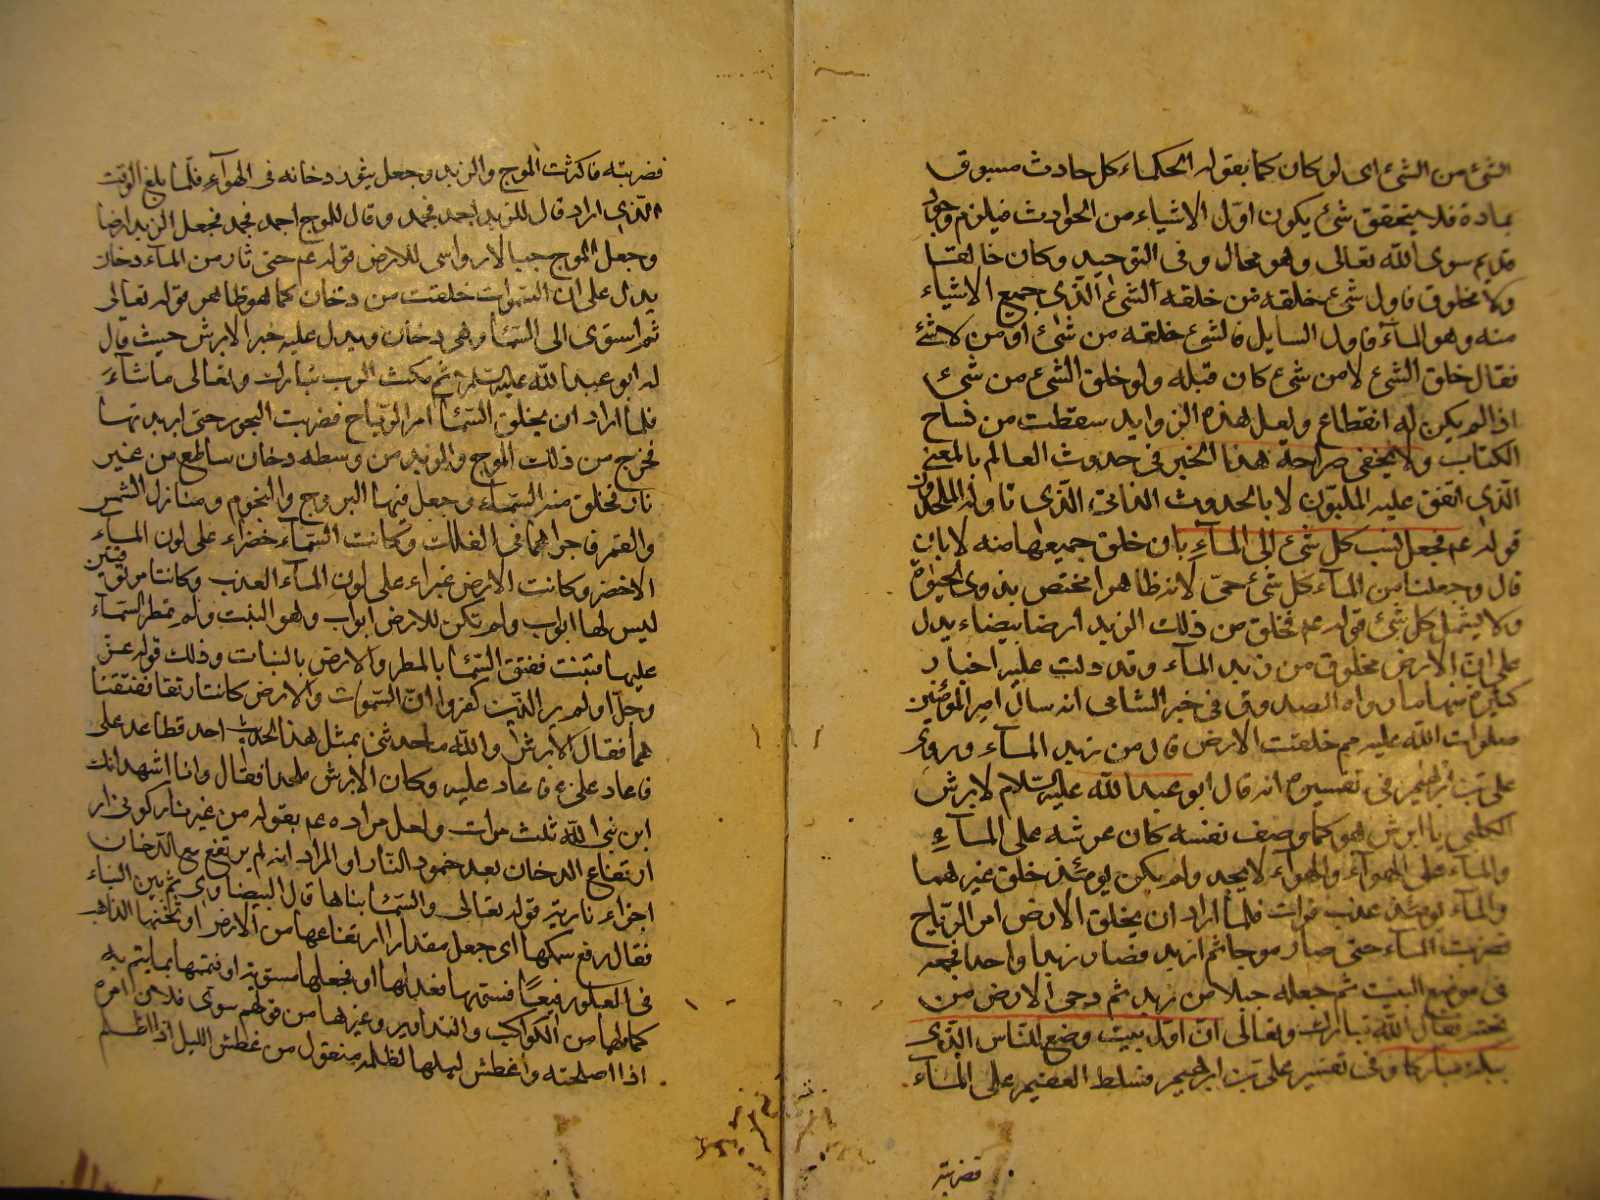 الشئ من الشئ اى لو كان كما يقوله الحكماء كل حادث مسبوق
بمادة فلا يتحقق شئ يكون اول الاشياء من الحوادث فيلزم وجود
قديم سوى الله تعالى وهو محال وفى التوحيد وكان خالقا
ولا مخلوق فاول شئ خلقه من خلقه الشئ الذى جميع الاشياء
منه وهو الماء فاول السايل فالشئ خلقه من شئ او من لا شئ
فقال خلق الشئ لا من شئ كان قبله ولو خلق الشئ من شئ
اذا لم يكن له انقطاع ولعل هذه الزوايد سقطت من نساخ
الكتاب ولا يخفى صراحة هذا الخبر فى حدوث العالم بالمعنى
الذى اتفق عليه المليون لا بالحدوث الذاتى الذى تاوله الملحدون
قوله عم فجعل نسب كل شئ الى الماء بان خلق جميعها منه لا بان
قال وجعلنا من الماء كل شئ حى لانه ظاهرا مختص بذوى الحيوة
ولا يشمل كل شئ قوله عم فخلق من ذلك الزبد ارضا بيضاء يدل
على ان الارض مخلوق من زبد الماء وقد دلت عليه اخبار
كثيرة منها ما رواه الصدوق فى خبر الشامى انه سال امير المؤمنين
صلوات الله عليه مم خلقت الارض قال من زبد الماء وروى
على بن ابرهيم فى تفسيره انه قال ابو عبد الله عليه السلام لابرش
الكلبى يا ابرش هو كما وصف نفسه كان عرشه على الماء
والماء على الهواء والهواء لا يحد ولم يكن يومئذ خلق غيرهما
والماء يومئذ عذب فرات فلما اراد ان يخلق الارض امر الرياح
فضربت الماء حتى صار موجا ثم ازبد فصار زبدا واحدا فجمعه
فى موضع البيت ثم جعله جبلا من زبد ثم دحى الارض من
تحته فقال الله تبارك وتعالى ان اول بيت وضع للناس الذى
ببكة مباركا وفى تفسير على بن ابرهيم فسلط العقيم على الماء
فضربته
فضربته فاكثرت الموج والزبد وجعل يثور دخانه فى الهواء فلما بلغ الوقت
الذى اراد قال للزبد اجمد فجمد وقال للموج اجمد فجمد فجعل الزبد ارضا
وجعل الموج جبالا رواسى للارض قوله عم حتى ثار من الماء دخان
يدل على ان السموات خلقت من دخان كما هو ظاهر قوله تعالى
ثم استوى الى السماء وهى دخان ويدل عليه خبر الابرش حيث قال
له ابو عبد الله عليه السلم ثم مكث الرب تبارك وتعالى ما شاء
فلما اراد ان يخلق السماء امر الرياح فضربت البحور حتى ازبدتها
فخرج من ذلك الموج والزبد من وسطه دخان ساطع من غير
نار فخلق منه السماء وجعل فيها البروج والنجوم ومنازل الشمس
والقمر فاجراهما فى الفلك وكانت السماء خضراء على لون الماء
الاخضر وكانت الارض غبراء على لون الماء العذب وكانتا مرتوقتين
ليس لها ابواب ولم تكن للارض ابواب وهو النبت ولم تمطر السماء
عليها فتنبت ففتق السماء بالمطر والارض بالنبات وذلك قوله عز
وجل اولم ير الذين كفروا ان السموات والارض كانتا رتقا ففتقنا
هما فقال الابرش والله ما حدثنى بمثل هذا الحديث احد قط اعد على
فاعاد عليه وكان الابرش ملحدا فقال وانا اشهد انك
ابن نبى الله ثلث مرات ولعل مراده عم بقوله من غير نار كونى نار
ارتفاع الدخان بعد خمود النار او المراد انه لم يرتفع مع الدخان
اجزاء نارية قوله تعالى والسماء بناها قال البيضاوى ثم بين البناء
فقال رفع سمكها اى جعل مقدار ارتفاعها من الارض او ثخنها الذاهب
فى العلو رفيعا فسوتها فعدلها او فجعلها مستوية او فتممها بما يتم به
كمالها من الكواكب والتداوير وغيرها من قولهم سوى فلان امره
اذا اصلحه واغطش ليلها اظلمه منقول من غطش الليل اذا اظلم